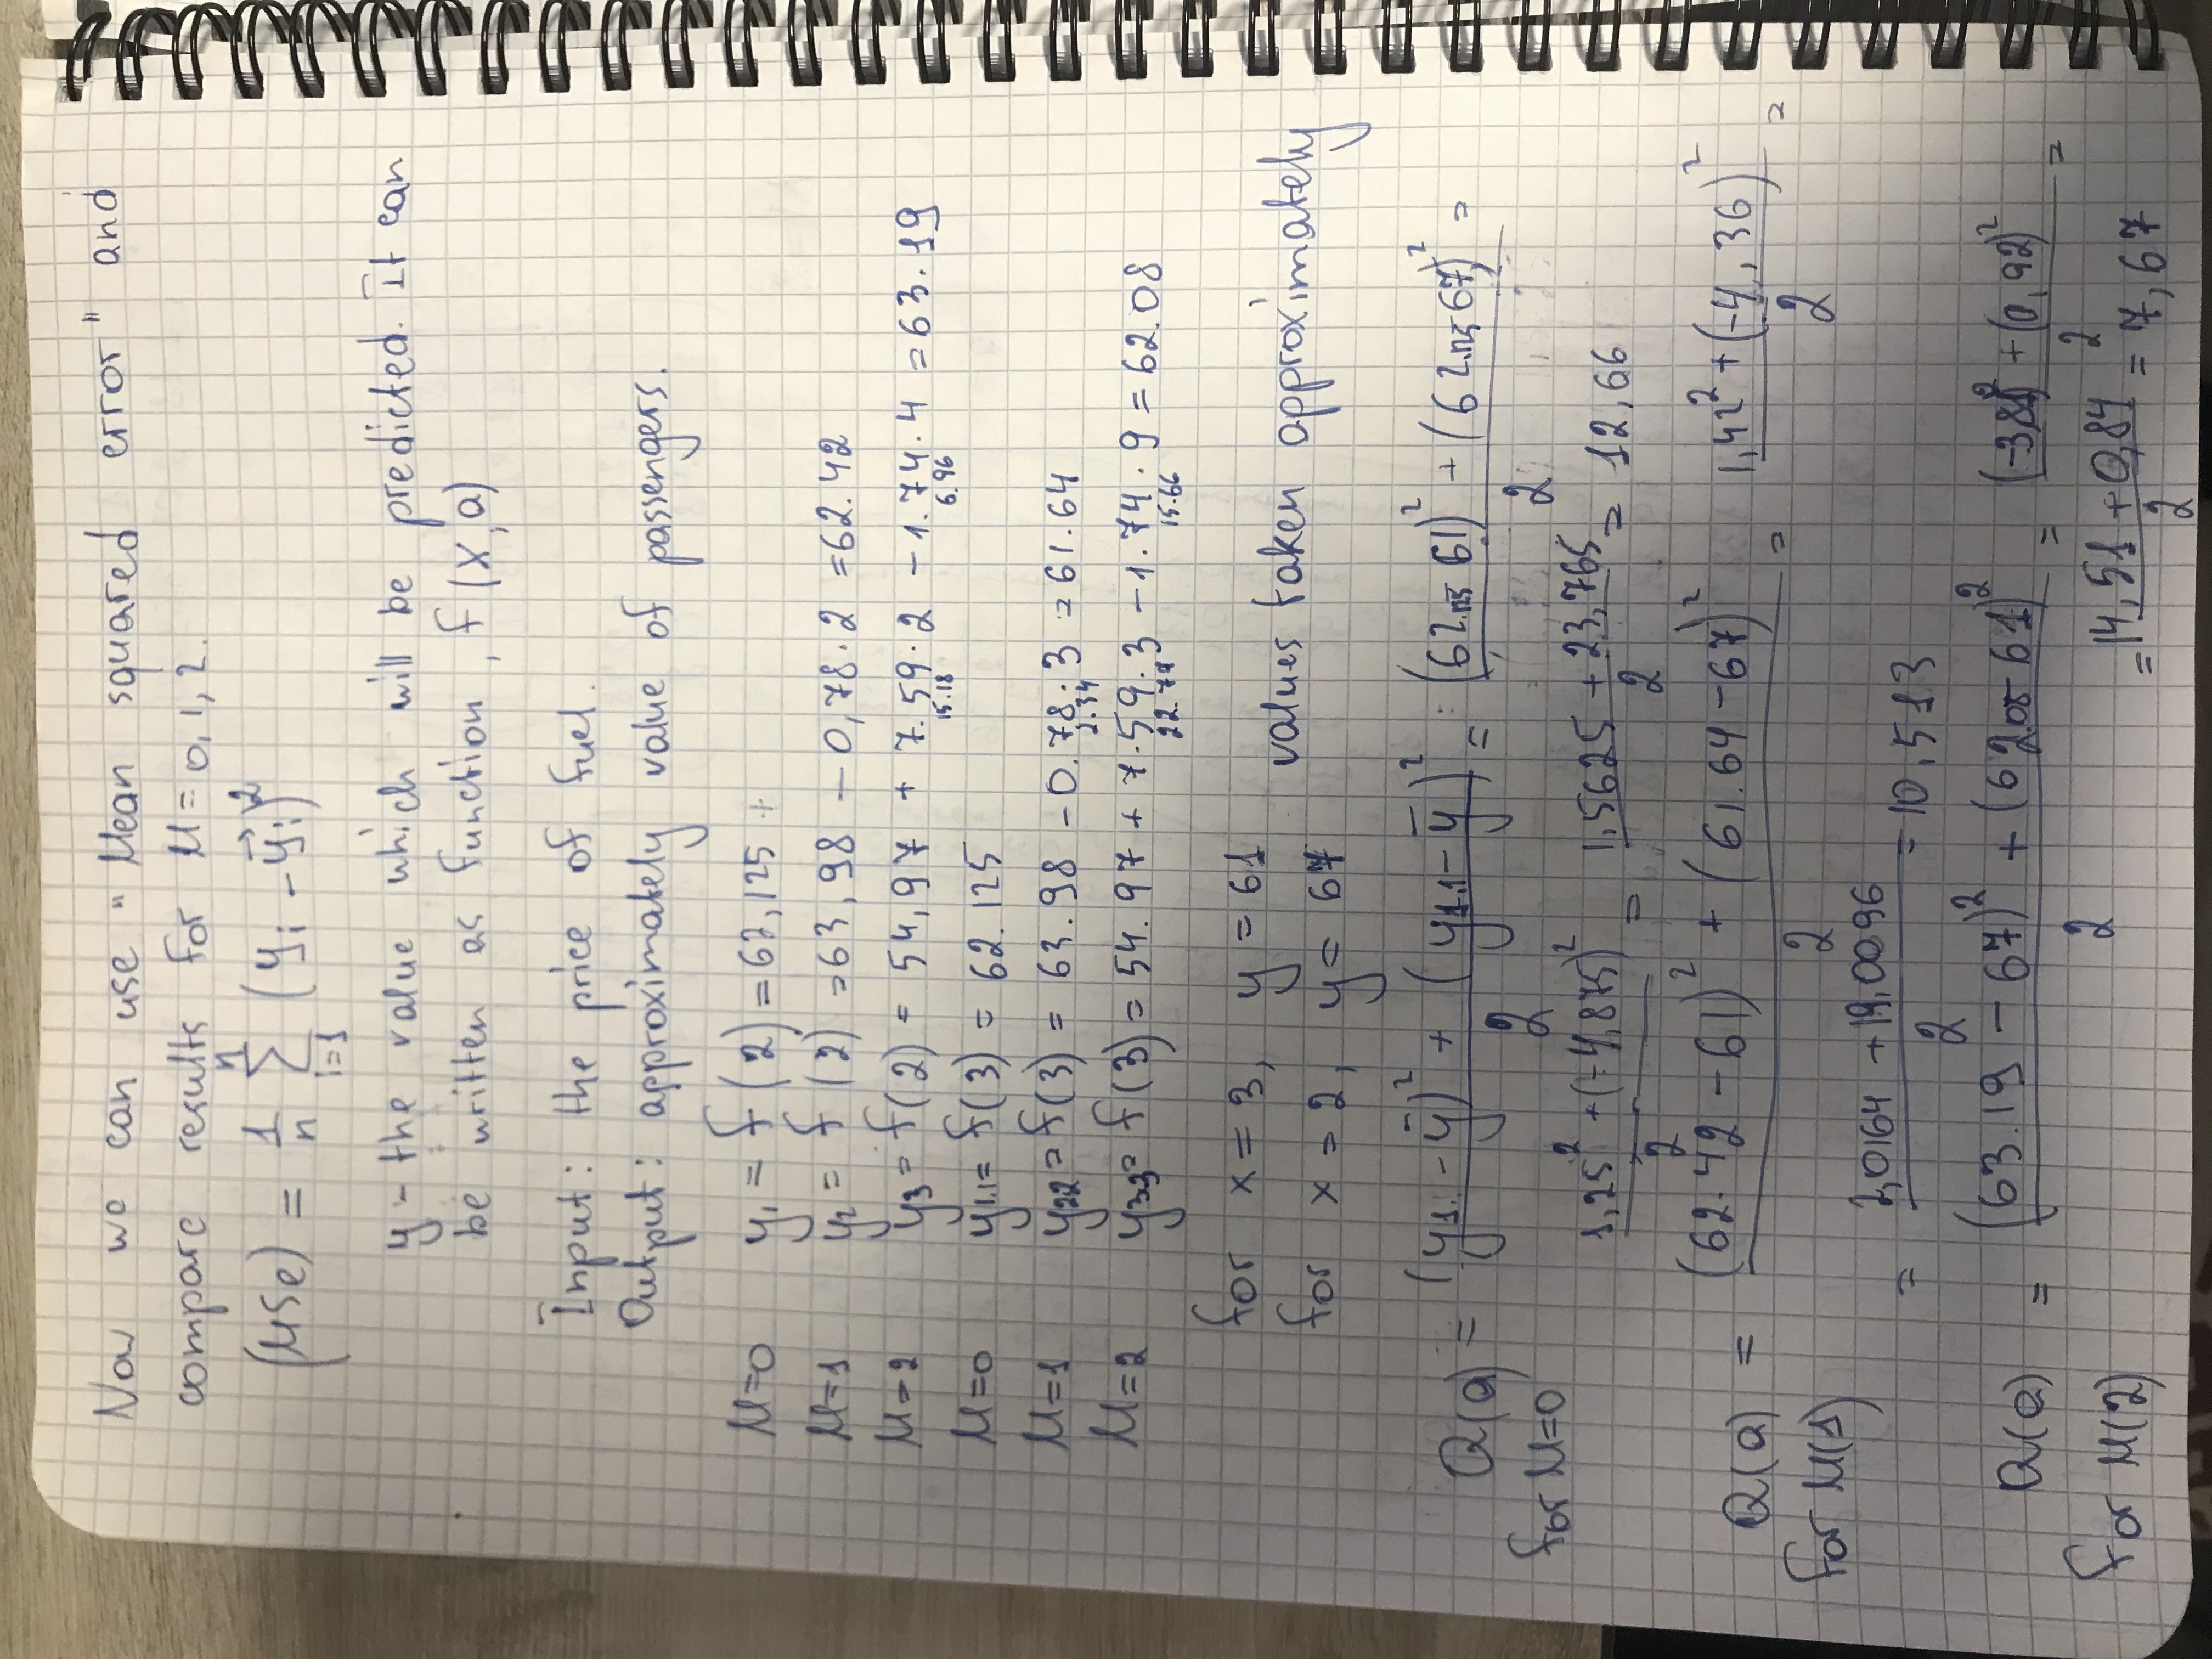 Now we can use "Mean squared error" and
compare results for M = 0, 1, 2.
(MSe) = 1/n ∑ i=1 n (yᵢ - y⃗ᵢ)²
y - the value which will be predicted. It can
be written as function, f (x, a)
Input: the price of fuel.
Output: approximately value of passengers.
M=0 y₁ = f (2) = 62,125
M=1 y₂ = f (2) = 63,98 - 0,78·2 = 62.42
M=2 y₃ = f(2) = 54,97 + 7.59·2 - 1.74·4 = 63.19
15.18 6.96
M=0 y₁.₁ = f(3) = 62.125
M=1 y₂₂ = f(3) = 63.98 - 0.78·3 = 61.64
2.34
M=2 y₃₃ = f(3) = 54.97 + 7.59·3 - 1.74·9 = 62.08
22.77 15.66
for x = 3, y = 61
values taken approximately
for x = 2, y = 67
Q(a) = ((y₁. - ȳ)² + (y₁.₁ - ȳ)²)/2 = ((62.125 - 61)² + (62.125 - 67)²)/2 =
for M=0
(1,25² + (-4,875)²)/2 = (1,5625 + 23,765)/2 = 12,66
Q(a) = ((62.42 - 61)² + (61.64 - 67)²)/2 = (1,42² + (-4,36)²)/2 =
for M(1)
= (2,0164 + 19,0096)/2 = 10,513
Q(a) = ((63.19 - 67)² + (62.08 - 61)²)/2 = ((-3,81)² + (0,92)²)/2 =
for M(2)
= (14,51 + 0,84)/2 = 7,67